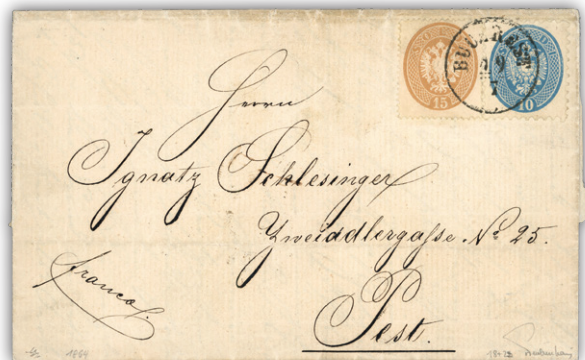 15
10
BUCAREST
Herrn
Ignatz Schlesinger
Zweiadlergasse No 25.
franco
Pest.
1864